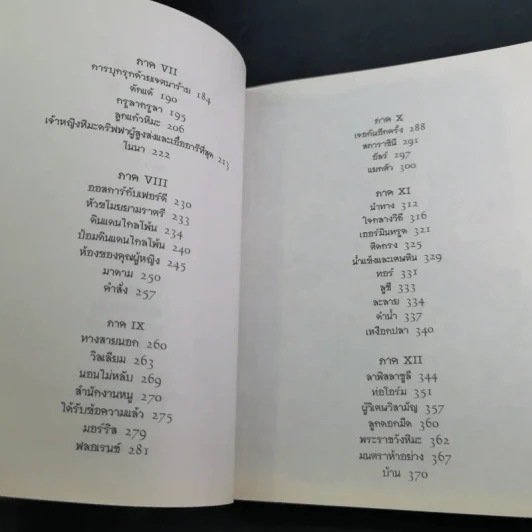 ภาค VII
การบุกรุกด้วยเจตนาร้าย 184
ดักแด้ 190
กรูลากรูลา 195
ลูกแก้วหิมะ 206
เจ้าหญิงหิมะดริฟฟาผู้สูงส่งและเยื่ออารีที่สุด 213
ไนนา 222
ภาค VIII
ออสการ์กับเฟอร์ดี 230
หัวขโมยยามราตรี 233
ดินแดนไกลโพ้น 234
ป้อมดินแดนไกลโพ้น 240
ห้องของคุณผู้หญิง 245
มาดาม 250
คำสั่ง 257
ภาค IX
ทางสายนอก 260
วิลเลียม 263
นอนไม่หลับ 269
สำนักงานหนู 270
ได้รับข้อความแล้ว 275
มอร์ริส 279
ฟลอเรนซ์ 281
ภาค X
เจอกันอีกครั้ง 288
สการาซินี 291
ฮัลร์ 297
แยกตัว 300
ภาค XI
นำทาง 312
ใจกลางวิถี 316
เฮอร์มินทรูด 321
ติดกรง 325
น้ำแข็งและเคนทีน 329
ทอร์ 331
ลูซี 333
ละลาย 334
ดำน้ำ 337
เหงือกปลา 340
ภาค XII
ลาพิสลาซูลี 344
ท่อไอร์ม 351
ผู้วิเศษวิสามัญ 357
ลูกดอกมืด 360
พระราชวังหิมะ 362
มนตราห้าอย่าง 367
บ้าน 370